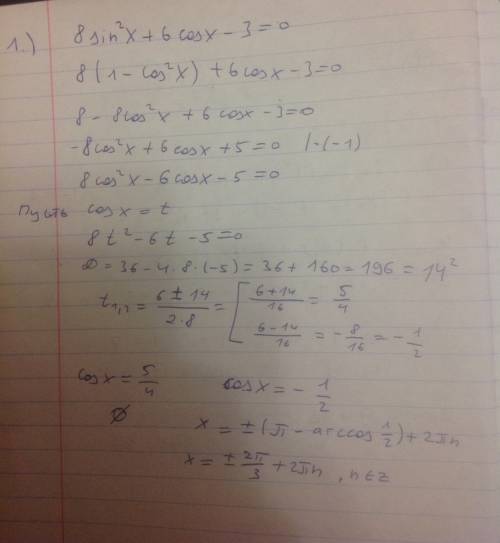 1.) 8 sin²x + 6 cosx - 3 = 0
8(1 - cos²x) + 6 cosx - 3 = 0
8 - 8cos²x + 6 cosx - 3 = 0
-8cos²x + 6 cosx + 5 = 0 |·(-1)
8cos²x - 6cosx - 5 = 0
Пусть cosx = t
8t² - 6t - 5 = 0
D = 36 - 4·8·(-5) = 36 + 160 = 196 = 14²
t₁,₂ = (6 ± 14)/(2·8) = [ (6+14)/16 = 5/4
(6-14)/16 = -8/16 = -1/2
cosx = 5/4 cosx = -1/2
∅ x = ±(π - arccos 1/2) + 2πn
x = ± 2π/3 + 2πn, n∈z